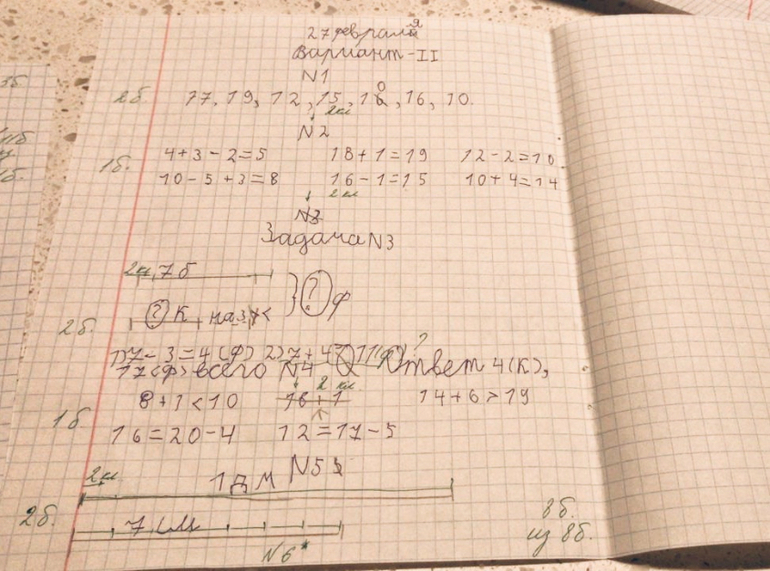 27 февраля
Вариант-II
N1
2б. 17, 19, 12, 15, 10, 16, 10.
2кл
N2
1б. 4+3-2=5 18+1=19 12-2=10
10-5+3=8 16-1=15 10+4=14
2кл
N3
Задача N3
2кл 7б
? ф
2б. ? К на 3 <
1) 7-3=4 (ф) 2) 7+4= 11(ф) ?
всего N4 Ответ 4(К),
2 кл
1б 8+1<10 16+1 14+6>19
16=20-4 12=17-5
N5
2кл 1дм
2б. 7см
8б.
из 8б.
N6*